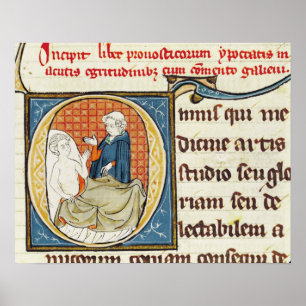 Incipit liber pronosticorum ypocratis in
acutis egritudinibz cum comento galieni.
mnis qui me
dicine artis
studio seu glo
riam seu de
lectabilem a
micorum copiam consequi de